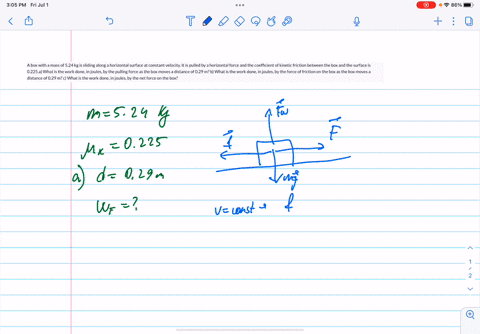 3:05 PM Fri Jul 1
86%
A box with a mass of 5.24 kg is sliding along a horizontal surface at constant velocity. It is pulled by a horizontal force and the coefficient of kinetic friction between the box and the surface is
0.225.a) What is the work done, in joules, by the pulling force as the box moves a distance of 0.29 m? b) What is the work done, in joules, by the force of friction on the box as the box moves a
distance of 0.29 m? c) What is the work done, in joules, by the net force on the box?
m = 5.24 kg
μk = 0.225
a) d = 0.29 m
WF = ?
FN
f
F
mg
v = const →
f
1
2